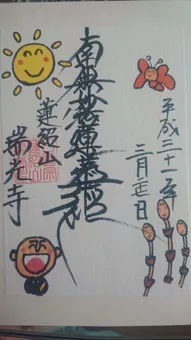 平成三十一年
三月
南無妙法蓮華経
蓮紹山
瑞光寺